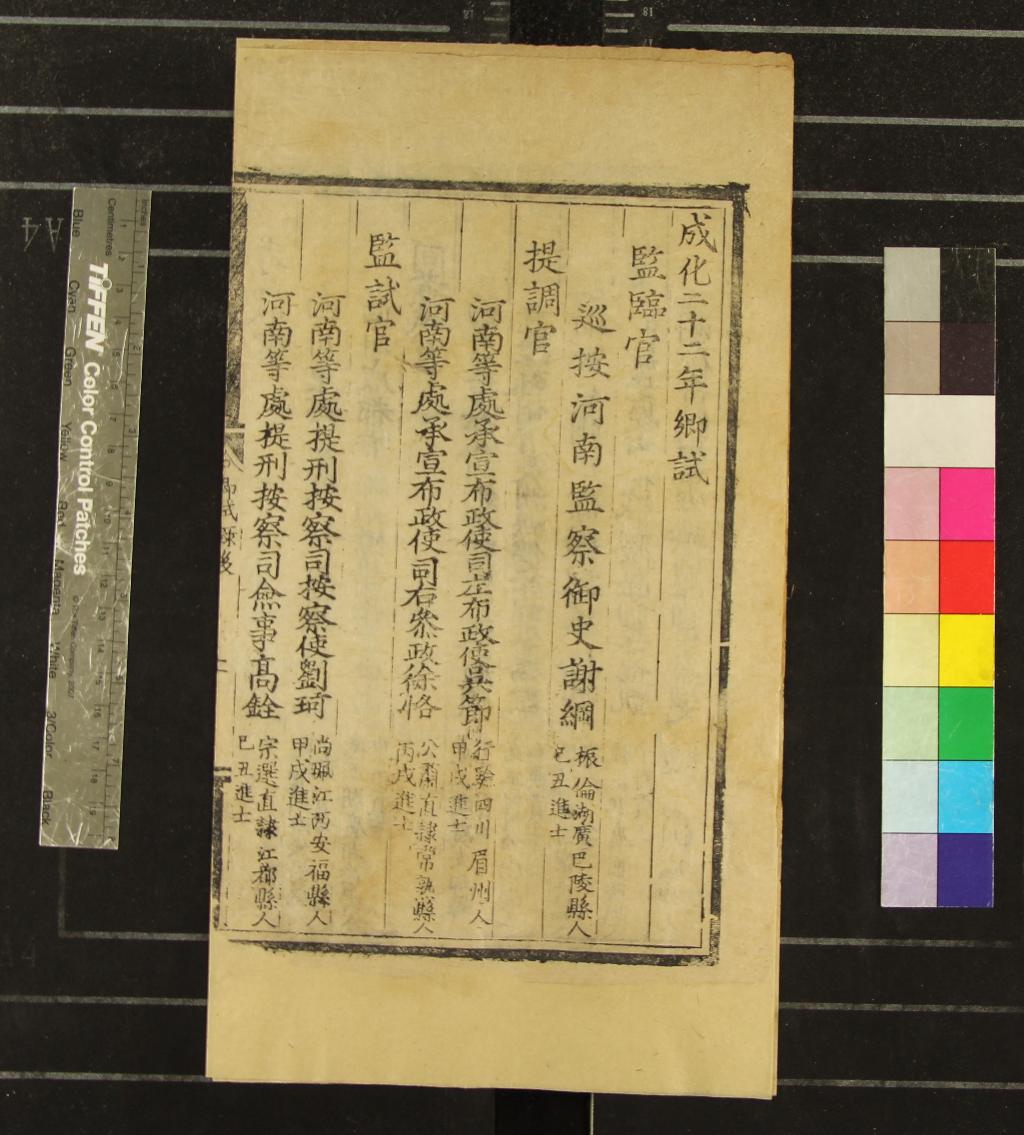 成化二十二年鄉試
監臨官
巡按河南監察御史謝綱
振倫湖廣巴陵縣人
己丑進士
提調官
河南等處承宣布政使司左布政使吳節
行  四川眉州人
甲戌進士
河南等處承宣布政使司右叅政徐恪
公肅直隸常熟縣人
丙戌進士
監試官
河南等處提刑按察司按察使劉珂
尚珮江西安福縣人
甲戌進士
河南等處提刑按察司僉事高銓
宗選直隸江都縣人
己丑進士
TIFFEN Color Control Patches
Centimetres
Inches
Blue
Cyan
Green
Yellow
Red
Magenta
White
3/Color
Black
A4